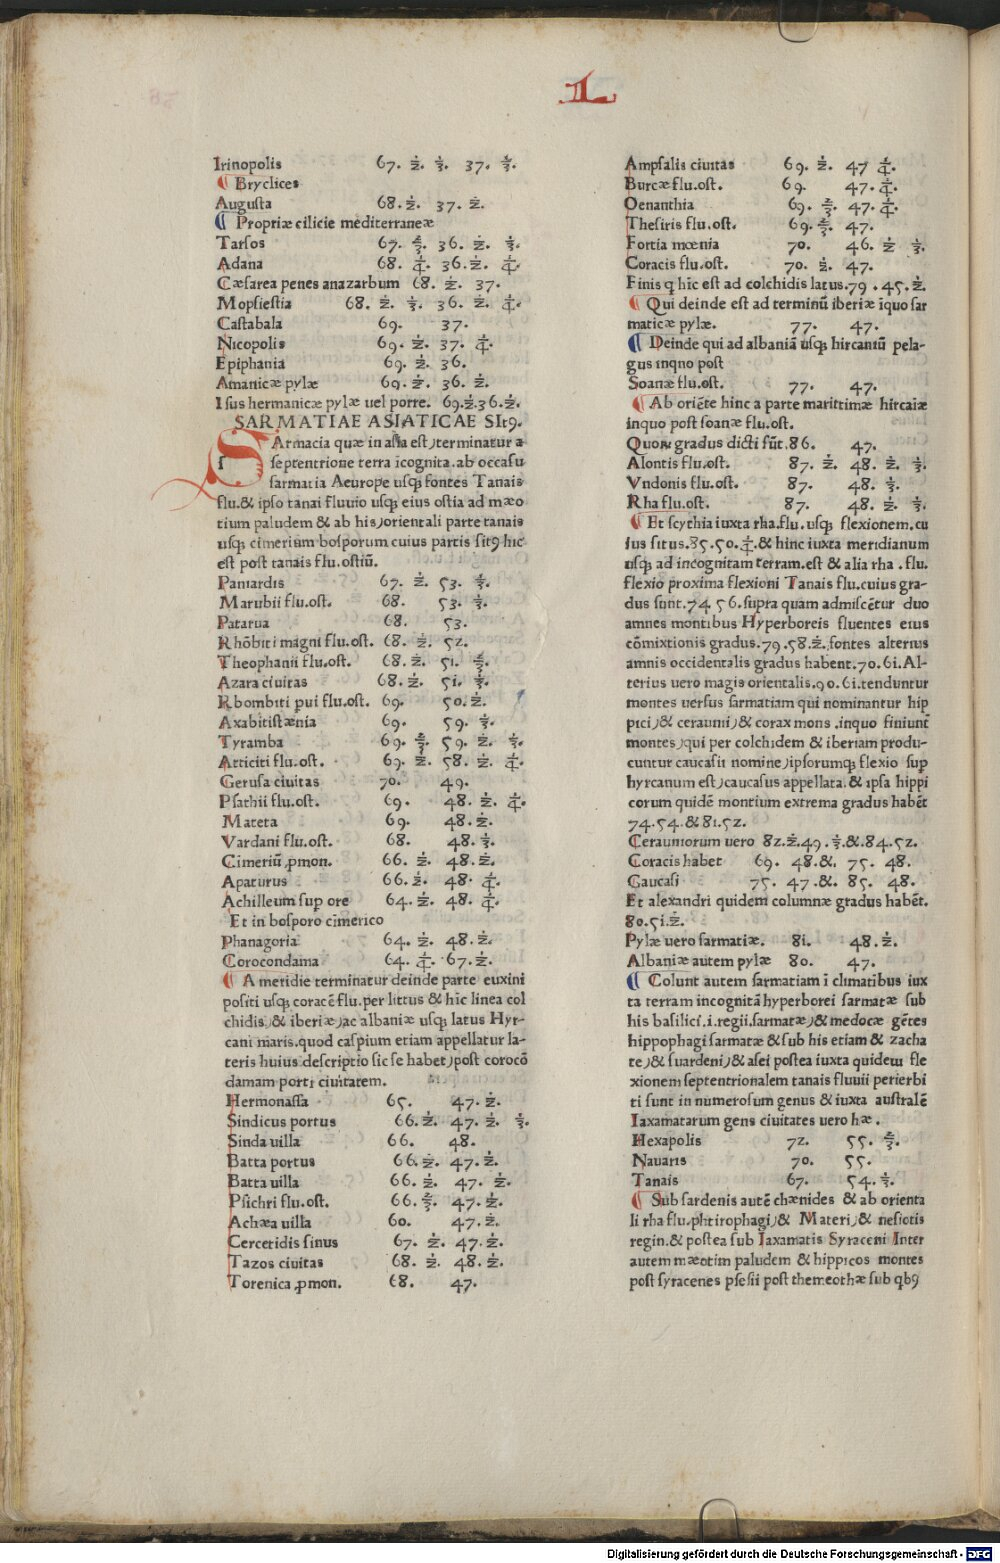 L
Irinopolis 67. ½. ⅓. 37. ⅔.
¶ Bryclices
Augusta 68. ½. 37. ½.
¶ Propriæ cilicie mediterraneæ
Tarsos 67. ⅔. 36. ½. ⅓.
Adana 68. ¼. 36. ½. ¼.
Cæsarea penes anazarbum 68. ½. 37.
Mopsiestia 68. ½. ⅓. 36. ½. ¼.
Castabala 69. 37.
Nicopolis 69. ½. 37. ¼.
Epiphania 69. ½. 36.
Amanicæ pylæ 69. ½. 36. ½.
Isus hermanicæ pylæ uel porte. 69.½.36.½.
SARMATIAE ASIATICAE SItꝰ.
SArmacia quæ in asia est, terminatur a
septentrione terra īcognita. ab occasu
sarmatia Aeurope usqꝫ fontes Tanais
flu. & ipso tanai fluuio usqꝫ eius ostia ad mæo
tium paludem & ab his, orientali parte tanais
usqꝫ cimerium bosporum cuius partis sitꝰ hic
est post tanais flu. ostiū.
Paniardis 67. ½. 53. ⅓.
Marubii flu. ost. 68. 53. ⅓.
Patarua 68. 53.
Rhōbiti magni flu. ost. 68. ½. 52.
Theophanii flu. ost. 68. ½. 51. ⅔.
Azara ciuitas 68. ½. 51. ⅓.
Rbombiti pui flu. ost. 69. 50. ½.
Axabitistænia 69. 59. ⅓.
Tyramba 69. ⅔. 59. ½. ⅓.
Atticiti flu. ost. 69. ½. 58. ½. ¼.
Gerusa ciuitas 70. 49.
Psathii flu. ost. 69. 48. ½. ¼.
Mateta 69. 48. ½.
Vardani flu. ost. 68. 48. ⅓.
Cimeriū ꝓmon. 66. ½. 48. ½.
Apaturus 66. ½. 48. ¼.
Achilleum sup ore 64. ½. 48. ¼.
Et in bosporo cīmerico
Phanagoria 64. ½. 48. ½.
Corocondama 64. ¼. 67. ½.
¶ A meridie terminatur deinde parte euxini
positi usqꝫ coracē flu. per littus & hīc linea col
chidis, & iberiæ, ac albaniæ usqꝫ latus Hyr-
cani maris. quod caspium etiam appellatur la-
teris huius descriptio sic se habet, post corocō
damam porti ciuitatem.
Hermonassa 65. 47. ½.
Sindicus portus 66. ½. 47. ½. ⅓.
Sinda uilla 66. 48.
Batta portus 66. ½. 47. ½.
Batta uilla 66. ½. 47. ½.
Psichri flu. ost. 66. ⅔. 47. ½.
Achæa uilla 60. 47. ½.
Cercetidis sinus 67. ½. 47. ½.
Tazos ciuitas 68. ½. 48. ½.
Torenica ꝓmon. 68. 47.
Ampsalis ciuitas 69. ½. 47 ¼.
Burcæ flu. ost. 69. 47. ¼.
Oenanthia 69. ⅔. 47. ¼.
Thesiris flu. ost. 69. ⅔. 47.
Fortia mœnia 70. 46. ½ ⅓.
Coracis flu. ost. 70. ½. 47.
Finis q hīc est ad colchidis latus. 79 . 45. ½.
¶ Qui deinde est ad terminū iberiæ īquo sar
maticæ pylæ. 77. 47.
¶ Deinde qui ad albaniā usqꝫ hircantū pela-
gus inqno post
Soanæ flu. ost. 77. 47.
¶ Ab oriēte hinc a parte marittimæ hircaiæ
inquo post soanæ flu. ost.
Quoꝝ gradus dicti sūt. 86. 47.
Alontis flu. ost. 87. ½. 48. ½. ⅓.
Vndonis flu. ost. 87. 48. ⅓.
Rha flu. ost. 87. 48. ½. ⅓.
¶ Et scythia iuxta rha. flu. usqꝫ flexionem. cu
ius situs. 85. 50. ¼. & hinc iuxta meridianum
usqꝫ ad incognitam terram. est & alia rha . flu.
flexio proxima flexioni Tanais flu. cuius gra-
dus sunt. 74. 56. supra quam admiscētur duo
amnes montibus Hyperboreis fluentes eius
cōmixtionis gradus. 79. 58. ½. fontes alterius
amnis occidentalis gradus habent. 70. 61. Al-
terius uero magis orientalis. 90. 61. tenduntur
montes uersus sarmatiam qui nominantur hip
pici, & ceraunii, & corax mons . inquo finiunt
montes, qui per colchidem & iberiam produ-
cuntur caucasii nomine, ipsorumqꝫ flexio sup
hyrcanum est, caucasus appellata. & ipsa hippi
corum quidē montium extrema gradus habēt
74. 54. & 81. 52.
Cerauniorum uero 82. ½. 49. ⅓. &. 84. 52.
Coracis habet 69. 48. &. 75. 48.
Caucasi 75. 47. &. 85. 48.
Et alexandri quidem columnæ gradus habēt.
80. 51. ½.
Pylæ uero sarmatiæ. 81. 48. ½.
Albaniæ autem pylæ 80. 47.
¶ Colunt autem sarmatiam ī climatibus iux
ta terram incognitā hyperborei sarmatæ sub
his basilici . i. regii. sarmatæ, & medocæ gētes
hippophagi sarmatæ & sub his etiam & zacha
te, & suardeni, & asei postea iuxta quidem fle
xionem septentrionalem tanais fluuii perierbi
ti sunt in numerosum genus & iuxta australē
Iaxamatarum gens ciuitates uero hæ .
Hexapolis 72. 55. ⅔.
Nauaris 70. 55.
Tanais 67. 54. ⅓.
¶ Sub sardenis autē chænides & ab orienta
li rha flu. phtirophagi, & Materi, & nesiotis
regin. & postea sub Iaxamatis Syraceni Inter
autem mæotim paludem & hippicos montes
post syracenes psesii post themeothæ sub qbꝰ
Digitalisierung gefördert durch die Deutsche Forschungsgemeinschaft - DFG